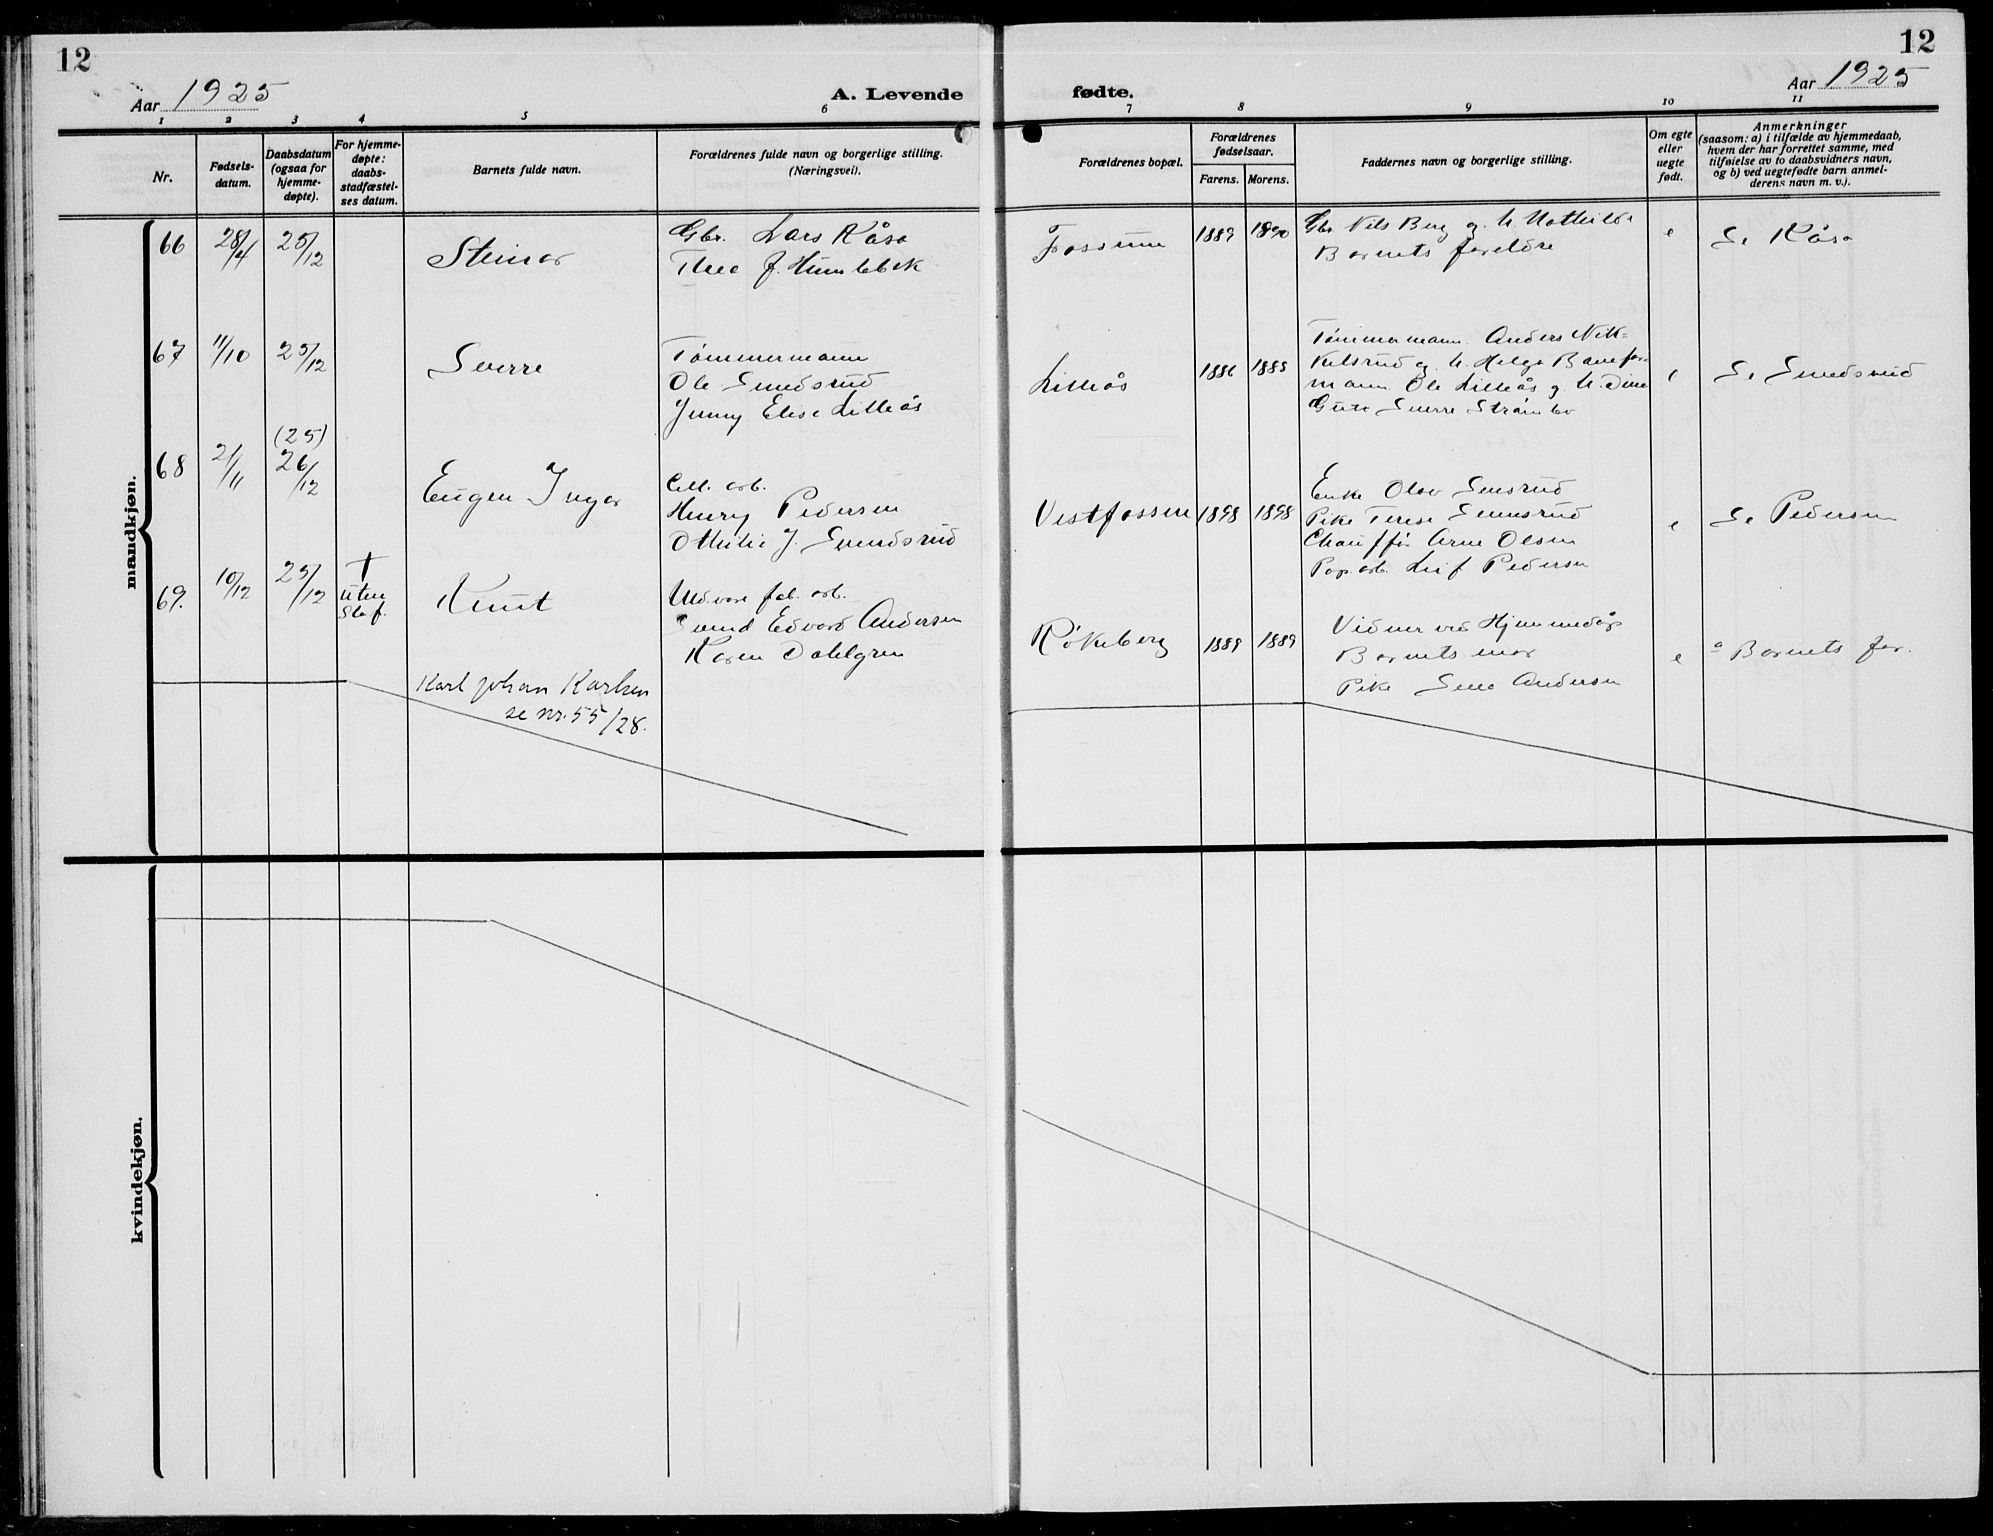 12
12
Aar 1925
A. Levende
fødte.
Aar 1925
1 2 3 4 5 6 7 8 9 10 11
Nr.
Fødsels-
datum.
Daabsdatum
(ogsaa for
hjemme-
døpte).
For hjemme-
døpte:
daabs-
stadfæstel-
ses datum.
Barnets fulde navn.
Forældrenes fulde navn og borgerlige stilling.
(Næringsvei).
Forældrenes bopæl.
Forældrenes
fødselsaar.
Farens. Morens.
Faddernes navn og borgerlige stilling.
Om egte
eller
uegte
født.
Anmerkninger
(saasom: a) i tilfælde av hjemmedaab,
hvem der har forrettet samme, med
tilføielse av to daabsvidners navn,
og b) ved uegtefødte barn anmel-
derens navn m. v.).
mandkjøn.
66 28/4 25/12
Steinar
Gbr. Lars Råsa
Thea J. Humlebek
Fossum
1889 1890
Gbr. Nils Berg og h. Mathilde
Barnets foreldre
e
L. Råsa
67 11/10 25/12
Sverre
Tømmermann
Ole Smedsrud
Jenny Elise Lilleås
Lilleås
1886 1885
Tømmermann Anders
og h. Helga
mann Ole Lilleås g. h.
Gute Sverre
e
68 2/11 (25) 26/12
Eugen Ingar
Cell. arb.
Henry Pedersen
Othilie J. Smedsrud
Vestfossen
1898 1898
Enke
Pike Terese
Chauffør Arne Olsen
Pap. arb. Leif Pedersen
e
Pedersen
69. 10/12 25/12
†
uten
Staf.
Knut
fab. arb.
Edvard Andersen
Karen Dahlgren
Røkeberg
1889 1889
Vidner ved Hjemmedåp
Barnets mor
Pike Andersen
e
a Barnets far.
Karl Johan Karlsen
se nr. 55/28.
kvindekjøn.